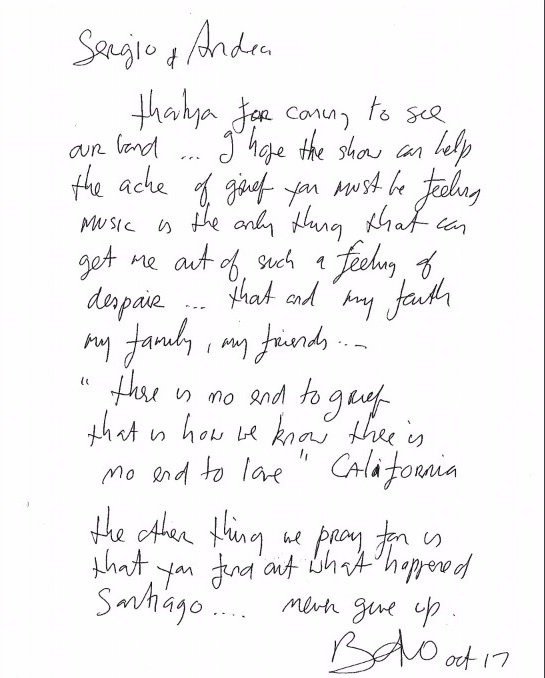 Sergio & Andrea
thankyou for coming to see
our band ... I hope the show can help
the ache of grief you must be feeling
MUSIC is the only thing that can
get me out of such a feeling of
despair ... that and my faith
my family, my friends ...
"there is no end to grief
that is how we know there is
no end to love" CALIFORNIA
the other thing we pray for is
that you find out what happened
Santiago .... never give up.
BONO oct 17